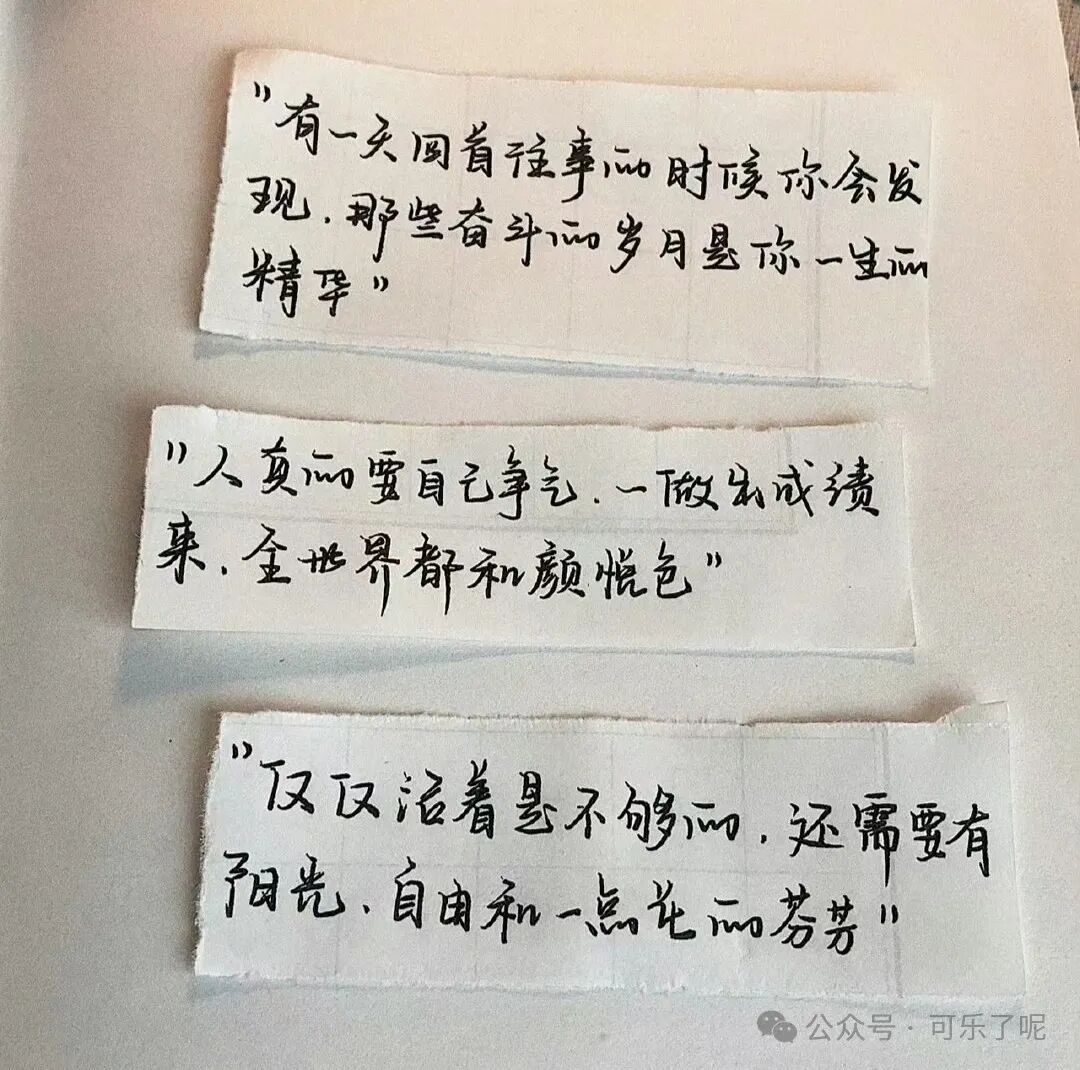 "有一天回首往事的时候你会发
现，那些奋斗的岁月是你一生的
精华"
"人真的要自己争气，一做出成绩
来，全世界都和颜悦色"
"仅仅活着是不够的，还需要有
阳光、自由和一点花的芬芳"
公众号·可乐了呢